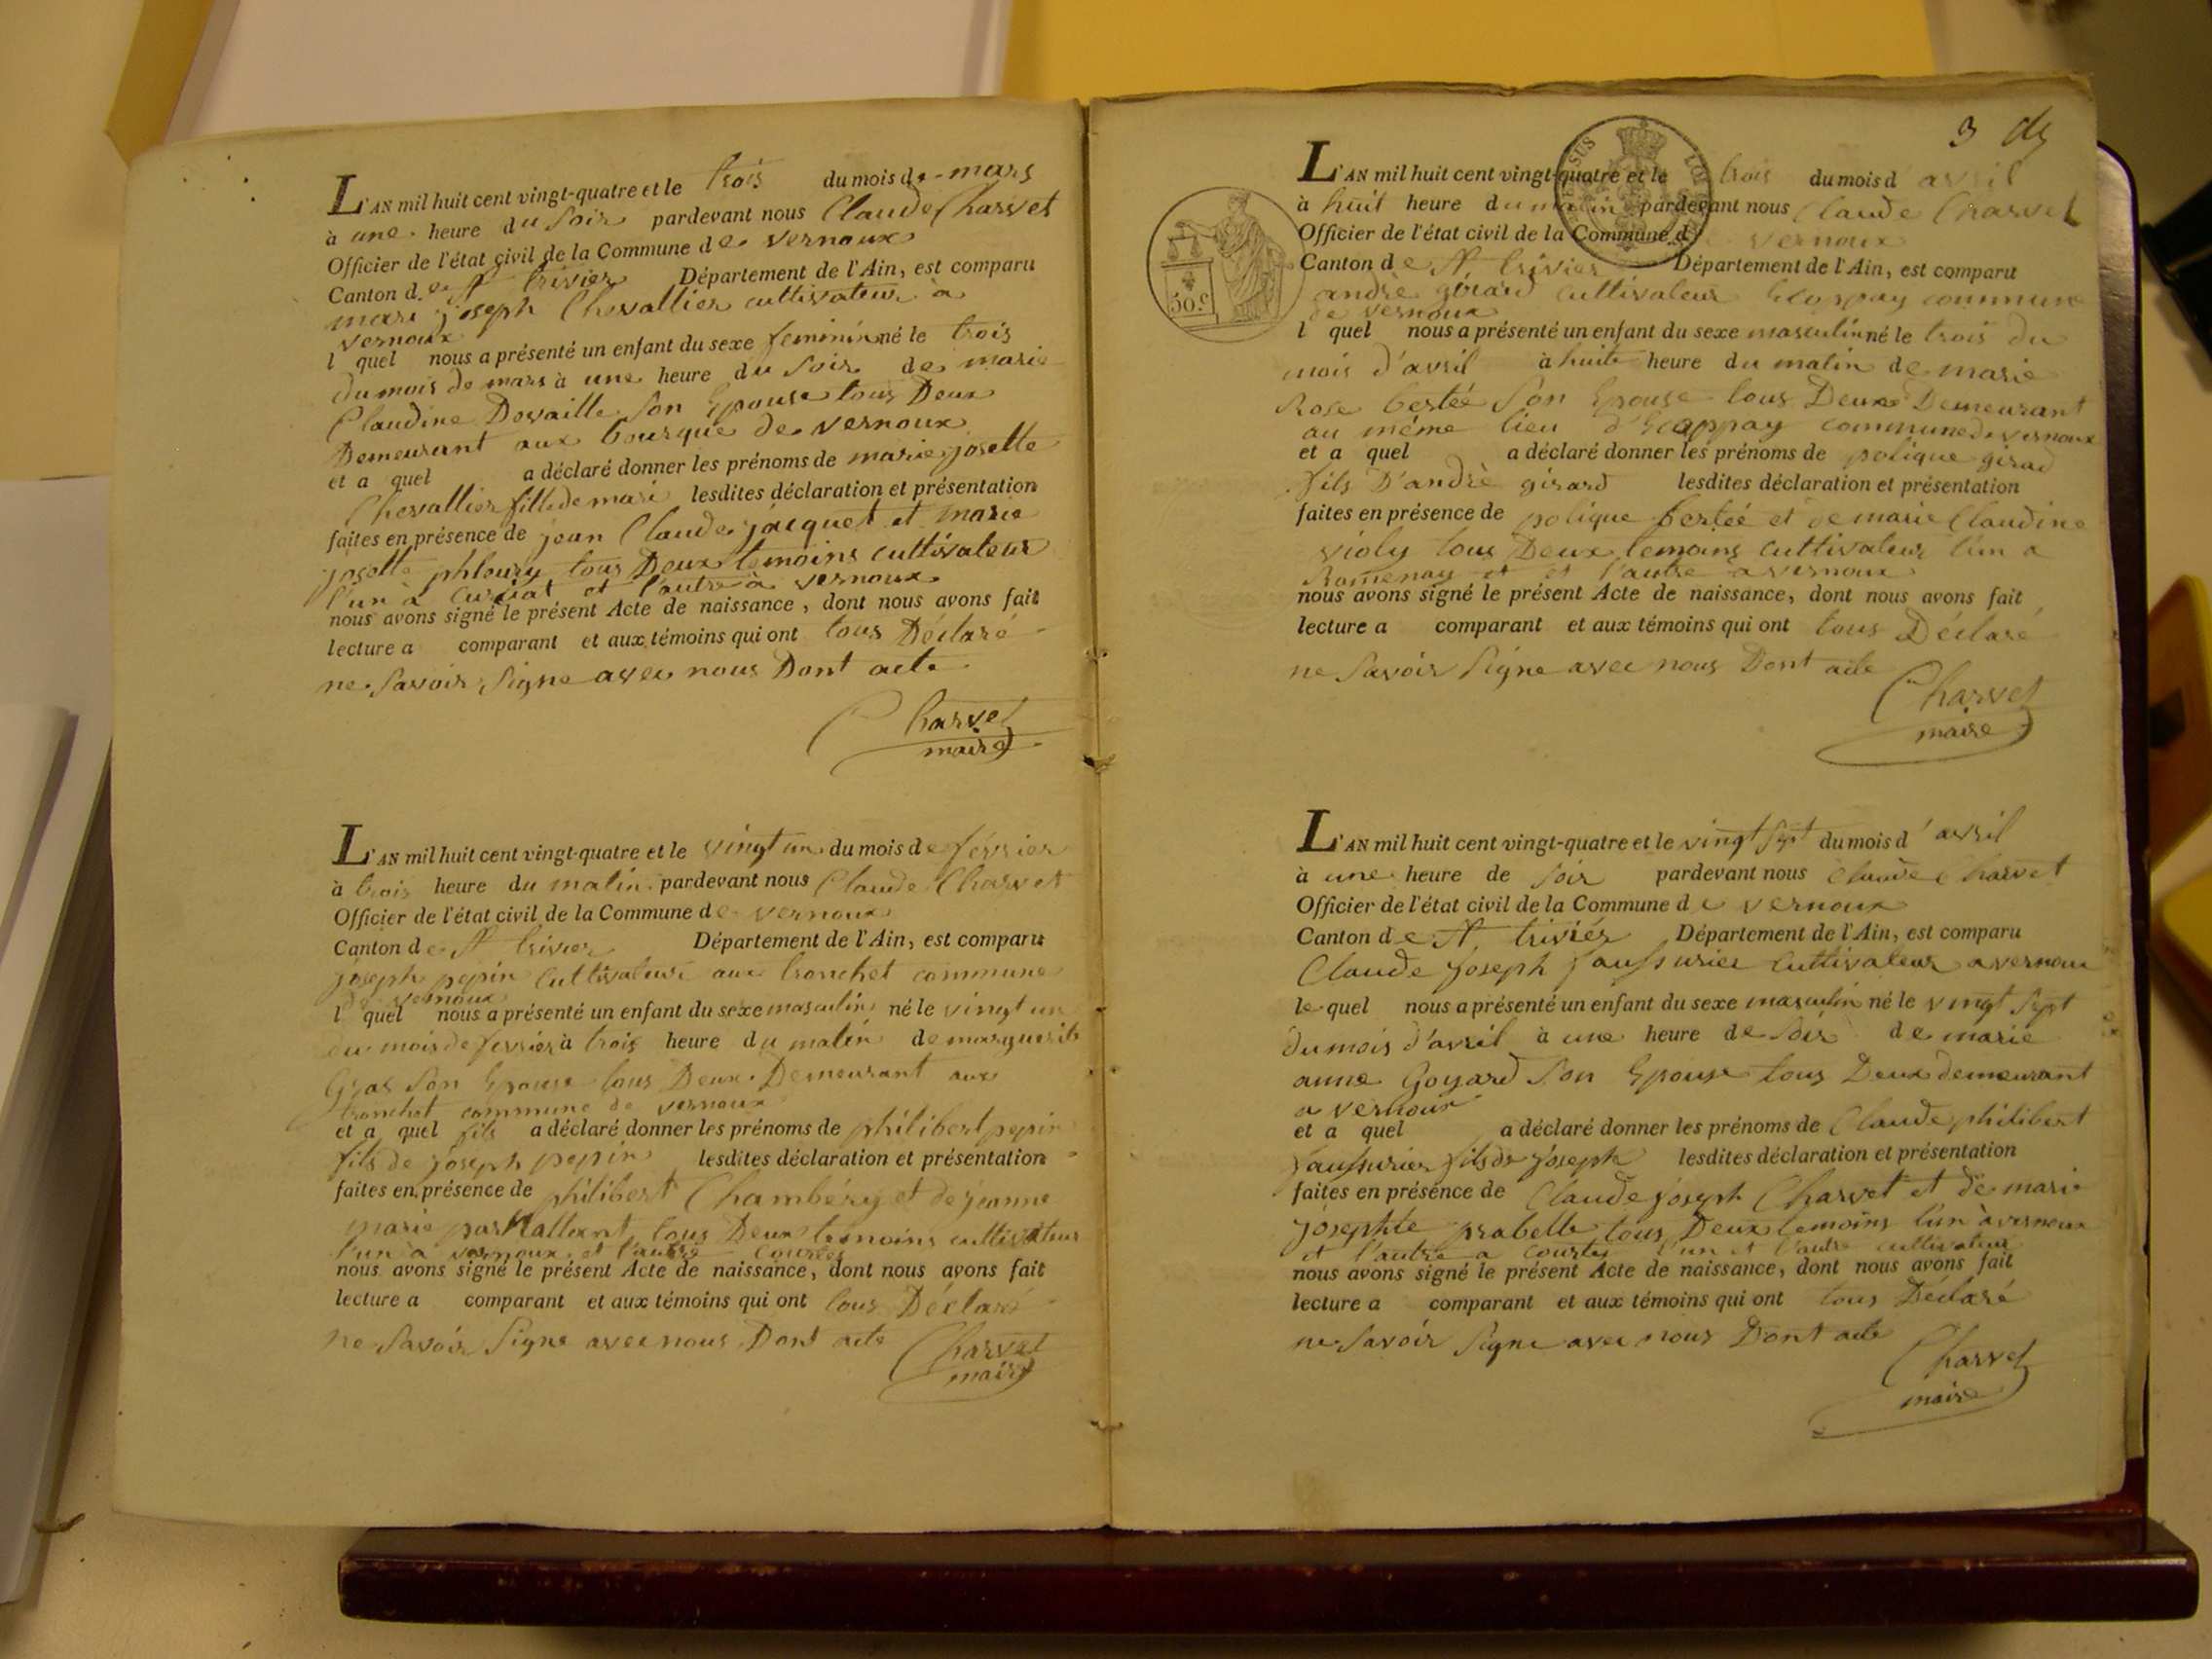 L'AN mil huit cent vingt-quatre et le trois du mois de mars
à une heure du soir pardevant nous Claude Charvet
Officier de l'état civil de la Commune de vernoux
Canton de St trivier Département de l'Ain, est comparu
mari joseph Chevallier cultivateur a
vernoux
l quel nous a présenté un enfant du sexe feminin né le trois
du mois de mars à une heure du soir de marie
Claudine Dovaille son Epouse tous Deux
Demeurant aux bourque de vernoux
et a quel a déclaré donner les prénoms de marie josette
Chevallier fille de mari lesdites déclaration et présentation
faites en présence de jean Claude jacquet et marie
josette phloury tous Deux temoins cultivateur
l'un à curciat et l'autre à vernoux
nous avons signé le présent Acte de naissance, dont nous avons fait
lecture a comparant et aux témoins qui ont tous Déclaré
ne savoir signe avec nous Dont acte
Charvet
maire
L'AN mil huit cent vingt-quatre et le vingt un du mois de fevrier
à trois heure du matin pardevant nous Claude Charvet
Officier de l'état civil de la Commune de vernoux
Canton de St trivier Département de l'Ain, est comparu
joseph pepin cultivateur aux tronchet commune
de vernoux
l quel nous a présenté un enfant du sexe masculin né le vingt un
du mois de fevrier à trois heure du matin de marguerite
Gras son Epouse tous Deux Demeurant aux
tronchet commune de vernoux
et a quel fils a déclaré donner les prénoms de philibert pepin
fils de joseph pepin lesdites déclaration et présentation
faites en présence de philibert Chambéry et de jeanne
marie tous Deux temoins cultivateur
l'un a vernoux et l'autre Courtes
nous avons signé le présent Acte de naissance, dont nous avons fait
lecture a comparant et aux témoins qui ont tous Déclaré
ne savoir signe avec nous Dont acte Charvet
maire
3
L'AN mil huit cent vingt-quatre et le trois du mois d avril
à huit heure du matin pardevant nous Claude Charvet
Officier de l'état civil de la Commune de vernoux
Canton de St trivier Département de l'Ain, est comparu
50 c.
andré girard cultivateur Ecoppay commune
de vernoux
l quel nous a présenté un enfant du sexe masculin né le trois du
mois d'avril à huite heure du matin de marie
Rose bertée son Epouse tous Deux Demeurant
au même lieu d'Ecoppay commune de vernoux
et a quel a déclaré donner les prénoms de polique girad
fils D'andrè girard lesdites déclaration et présentation
faites en présence de polique bertéé et de marie Claudine
violy tous Deux temoins cultivateur l'un a
Romenay et et l'autre a vernoux
nous avons signé le présent Acte de naissance, dont nous avons fait
lecture a comparant et aux témoins qui ont tous Déclaré
ne savoir signe avec nous Dont acte
Charvet
maire
L'AN mil huit cent vingt-quatre et le vingt sept du mois d'avril
à une heure de soir pardevant nous Claude Charvet
Officier de l'état civil de la Commune de vernoux
Canton de St triviér Département de l'Ain, est comparu
Claude joseph jaussurier cultivateur a vernoux
le quel nous a présenté un enfant du sexe masculin né le vingt sept
du mois d'avril à une heure de soir de marie
anne Goyard son Epouse tous Deux demeurant
a vernoux
et a quel a déclaré donner les prénoms de Claude philibert
jaussurier fils de joseph lesdites déclaration et présentation
faites en présence de Claude joseph Charvet et de marie
josephte prabelle tous Deux temoins l'un à vernoux
et l'autre a Courtes l'un et l'autre cultivateur
nous avons signé le présent Acte de naissance, dont nous avons fait
lecture a comparant et aux témoins qui ont tous Déclaré
ne savoir signe avec nous Dont acte
Charvet
maire